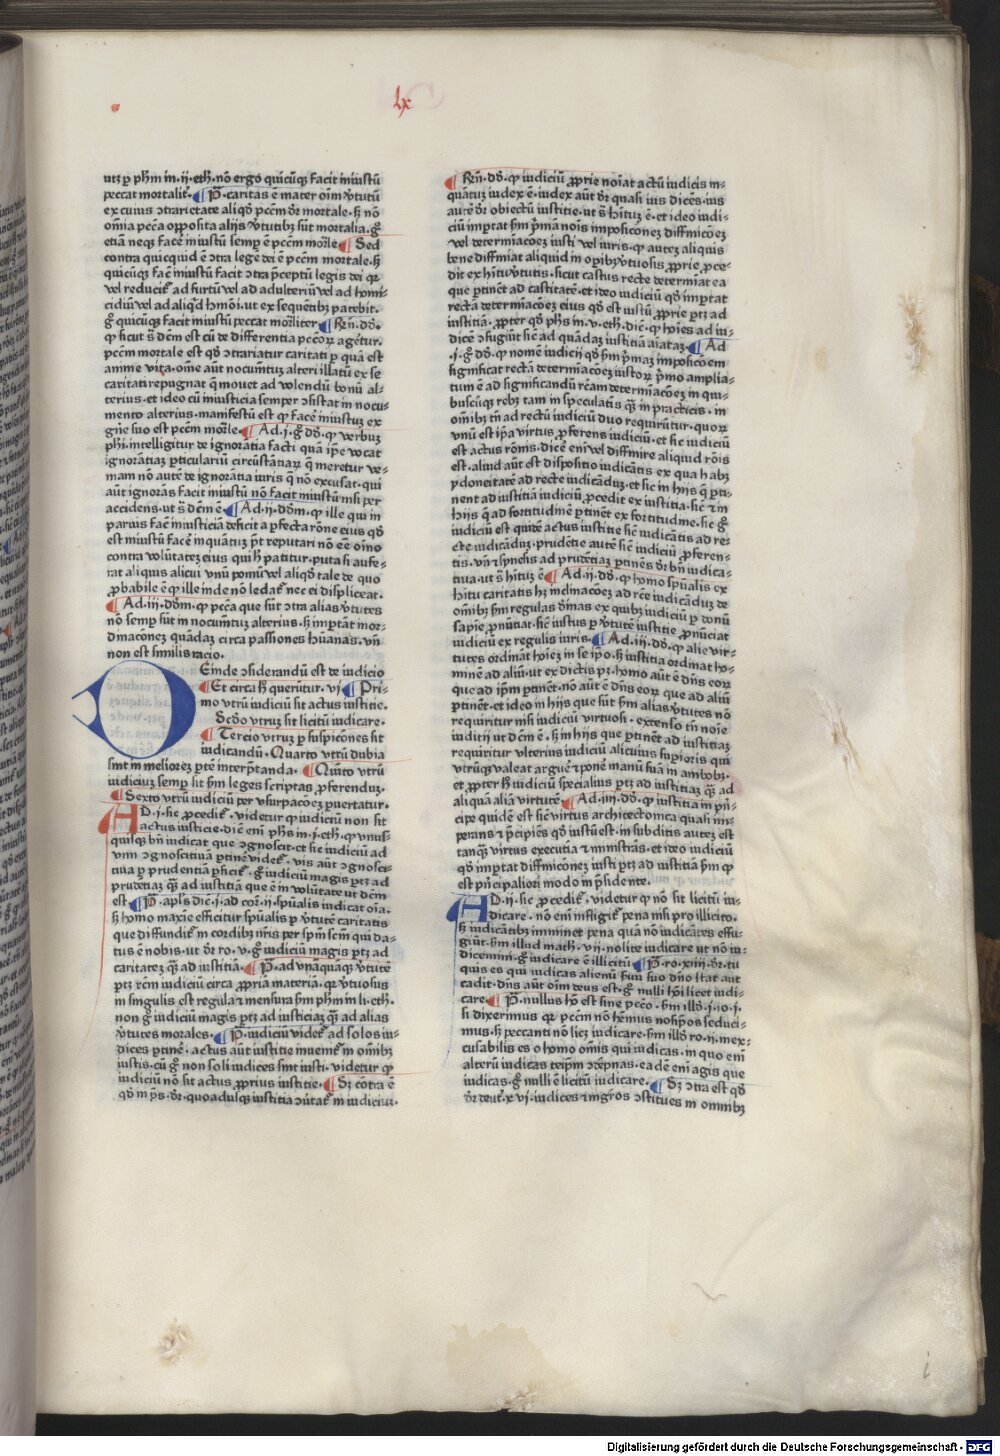 lx
utz ꝑ phm in .ij. eth. nō ergo quicūq̨ facit iniustū
peccat mortalit᷑. P̄. caritas ē mater oīm v̓tutū
ex cuius ꝯtrarietate aliqd̓ pccm̄ dr̄ mortale. sꝫ nō
omīa pccā opposita alijs v̓tutibꝫ sūt mortalia. g̊
etiā neqꝫ facē iniustū semp̲ ē pccm̄ mor̄le Sed
contra quicquid ē ꝯtra legē dei ē pccm̄ mortale. sꝫ
quicūqꝫ facē iniustū facit ꝯtra p̄ceptū legis dei qr̄
vel reducit᷑ ad furtū vel ad adulteriū vel ad homi-
cidiū vel ad aliqd̓ hmōi. ut ex sequētibꝫ patebit.
g̊ quicūqꝫ facit iniustū peccat mor̄liter Rn̄. dō.
ꝙ sicut s̄ dcm̄ est cū de differentia pccōꝝ agetur.
pccm̄ mortale est qd̓ ꝯtrariatur caritati ꝑ quā est
anime vita. om̄e aūt nocumētuꝫ alteri illatū ex se
caritati repugnat q̄ mouet ad volendū bonū al-
terius. et ideo cū iniusticia semper ꝯsistat in nocu-
mento alterius. manifestū est ꝙ facē iniustuꝫ ex
gn̄e suo est pccm̄ mor̄le. Ad .j. g̊ dō. ꝙ verbuꝫ
phi. intelligitur de ignorātia facti quā ip̄e vocat
ignorātiaꝫ ꝑticulariū circūstātiaꝝ q̄ meretur ve-
niam nō autē de ignorātia iuris q̄ nō excusat. qui
aūt ignorās facit iniustū nō facit iniustū nisi per
accidens. ut s̄ dcm̄ ē Ad .ij. dōm. ꝙ ille qui in
paruis facē iniusticiā deficit a ꝑfecta rōne eius qd̓
est iniustū facē inquātuꝫ pōt reputari nō eē oīno
contra volūtateꝫ eius qui hꝫ patitur. puta si aufe-
rat aliquis alicui vnū pomū vel aliqd̓ tale de quo
ꝓbabile ē ꝙ ille inde nō ledat᷑ nec ei displiceat.
Ad .iij. dōm. ꝙ pccā que sūt ꝯtra alias v̓tutes
nō semp̲ sūt in nocumētuꝫ alterius. sꝫ imp̄tāt inor-
dinacōnes quādaꝫ circa passiones hūanas. vn̄
non est similis racio.
Deinde ꝯsiderandū est de iudicio
Et circa hꝫ querūtur .vj. Pri-
mo vtrū iudiciū sit actus iusticie.
Scdō vtruꝫ sit licitū iudicare.
Tercio vtruꝫ ꝑ suspicōnes sit
iudicandū. Quarto vtrū dubia
sint in melioreꝫ ꝑtē interp̄tanda. Quīto vtrū
iudiciuꝫ semp̲ sit s̄m leges scriptas ꝓferenduꝫ.
Sexto vtrū iudiciū per vsurpacōeꝫ ꝑuertatur.
AD .j. sic ꝓcedit᷑. videtur ꝙ iudiciū non sit
actus iusticie. dic̄ eni phs in .j. eth. ꝙ vnus-
quisqꝫ bn̄ iudicat que ꝯgnoscit. et sic iudiciū ad
vim ꝯgnoscitiuā ꝑtinē videt᷑. vis aūt ꝯgnosci-
tiua ꝑ prudentiā ꝑficit᷑. g̊ iudiciū magis ptꝫ ad
prudētiaꝫ qꝫ ad iustitiā que ē in volūtate ut dcm̄
est. P̄. apl̄s dic̄ .j. ad coꝝ .ij. spūalis iudicat oīa.
sꝫ homo maxīe efficitur spūalis ꝑ v̓tutē caritatis
que diffundit᷑ in cordibꝫ nr̄is per sp̄m scm̄ qui da-
tus ē nobis. ut dr̄ ro. v. g̊ iudiciū magis ptꝫ ad
caritateꝫ qꝫ ad iustitiā. P̄. ad vnāquāqꝫ v̓tutē
ptꝫ rcm̄ iudiciū circa ꝓpriā materiā. qꝛ v̓tuosus
in singulis est regula ⁊ mensura s̄m phm in .ij. eth.
non g̊ iudiciū magis ptꝫ ad iusticiaꝫ qꝫ ad alias
v̓tutes morales. P̄. iudiciū videt᷑ ad solos iu-
dices ꝑtinē. actus aūt iustitie inuenit᷑ in om̄ibꝫ
iustis. cū g̊ non soli iudices sint iusti. videtur ꝙ
iudiciū nō sit actus ꝓprius iustitie. Sꝫ cōtra ē
qd̓ in ps̄. dr̄. quoadusqꝫ iustitia ꝯūtat᷑ in iudiciuꝫ.
Rn̄. dō. ꝙ iudiciū ꝓprie noīat actū iudicis in-
quātuꝫ iudex ē. iudex aūt dr̄ quasi ius dicēs. ius
autē dr̄ obiectū iustitie. ut s̄ hituꝫ ē. et ideo iudi-
ciū imp̄tat s̄m p̄mā noīs impoſiconeꝫ diffinicōeꝫ
vel determīacōeꝫ iusti vel iuris. ꝙ auteꝫ aliquis
bene diffiniat aliquid in opibꝫ v̓tuosis ꝓprie ꝓce-
dit ex hītu v̓tutis. sicut castus recte determīat ea
que ꝑtinēt ad castitatē. et ideo iudiciū qd̓ imp̄tat
rectā determīacōeꝫ eius qd̓ est iustū ꝓprie ptꝫ ad
iustitiā. ꝓpter qd̓ phs in .v. eth. dic̄. ꝙ hoīes ad iu-
dicē ꝯfugiūt sic ad quādaꝫ iustitiā aīataꝫ. Ad
.j. g̊ dō. ꝙ nomē iudicij qd̓ s̄m p̄maꝫ impoſicōem
significat rectā determīacōeꝫ iustoꝝ p̄mo amplia-
tum ē ad significandū rcām determīacōeꝫ in qui-
buscūqꝫ rebꝫ tam in speculatīs qꝫ in practicis. in
om̄ibꝫ tn̄ ad rectū iudiciū duo requirūtur. quoꝝ
vnū est ip̄a virtus ꝓferens iudiciū. et sic iudiciū
est actus rōnis. dicē eni vel diffinire aliquid rōis
est. aliud aūt est dispositio iudicātis ex qua habꝫ
ydoneitatē ad recte iudicāduꝫ. et sic in hijs q̄ ꝑti-
nent ad iustitiā iudiciū ꝓcedit ex iustitia. sic ⁊ in
hijs q̄ ad fortitudinē ꝑtinēt ex fortitudīe. sic g̊
iudiciū est quidē actus iustitie sic̄ indicātis ad re-
cte iudicāduꝫ. prudētie autē sic̄ iudiciū ꝓferen-
tis. vn̄ ⁊ synesis ad prudētiaꝫ ꝑtinēs dr̄ bn̄ iudica-
tiua. ut s̄ hituꝫ ē Ad .ij. dō. ꝙ homo spūalis ex
hītu caritatis hꝫ inclinacōeꝫ ad rcē iudicāduꝫ de
om̄ibꝫ s̄m regulas diuinas ex quibꝫ iudiciū ꝑ donū
sapīe ꝓnūtiat. sic̄ iustus ꝑ v̓tutē iustitie ꝓnūciat
iudiciū ex regulis iuris. Ad .iij. dō. ꝙ alie vir-
tutes ordināt hoīeꝫ in se ip̄o. sꝫ iustitia ordinat ho-
minē ad aliū. ut ex dictis pꝫ. homo aūt ē dn̄s eoꝝ
que ad ip̄m ꝑtinēt. nō aūt ē dn̄s eoꝝ que ad aliū
ꝑtinēt. et ideo in hijs que sūt s̄m alias v̓tutes nō
requiritur nisi iudiciū virtuosi. extenso tn̄ noīe
iuditij ut dcm̄ ē. sꝫ in hijs que ꝑtinēt ad iustitiaꝫ
requiritur vlterius iudiciū alicuius suꝑioris qui
vtrūqꝫ valeat arguē ⁊ ponē manū suā in ambobꝫ.
et ꝓpter hꝫ iudiciū specialius ptꝫ ad iustitiaꝫ qꝫ ad
aliquā aliā virtutē Ad .iiij. dō. ꝙ iustitia in pn̄-
cipe quidē est sic̄ virtus architectonica quasi im-
perans ⁊ p̄cipiēs qd̓ iustū est. in subditis auteꝫ est
tanqꝫ virtus executiua ⁊ ministrās. et ideo iudiciū
qd̓ imp̄tat diffinicōneꝫ iusti ptꝫ ad iustitiā s̄m ꝙ
est pn̄cipaliori modo in p̄sidente.
AD .ij. sic ꝓcedit᷑. videtur ꝙ nō sit licitū iu-
dicare. nō eni infligit᷑ pena nisi pro illicito.
sꝫ iudicātibꝫ imminet pena quā nō iudicātes effu-
giūt. s̄m illud math. vij. nolite iudicare ut nō iu-
dicemini. g̊ iudicare ē illicitū P̄. ro. xiiij. dr̄. tu
quis es qui iudicas alienū suū suo dn̄o stat aut
cadit. dn̄s aūt oīm deus est. g̊ nulli hōi licet iudi-
care P̄. nullus hō est sine pccō. s̄m illd̓ .j. io. j.
si dixerimus qꝛ pccm̄ nō hēmus nosip̄os seduci-
mus. sꝫ peccanti nō licꝫ iudicare. s̄m illd̓ ro. ij. inex-
cusabilis es o homo om̄is qui iudicas. in quo eni
alterū iudicas teip̄m ꝯdēpnas. eadē eni agis que
iudicas. g̊ nulli ē licitū iudicare. Sꝫ ꝯtra est qd̓
dr̄ deut᷑. xvj. iudices ⁊ mgr̄os ꝯstitues in omnibꝫ
i
Digitalisierung gefördert durch die Deutsche Forschungsgemeinschaft - DFG